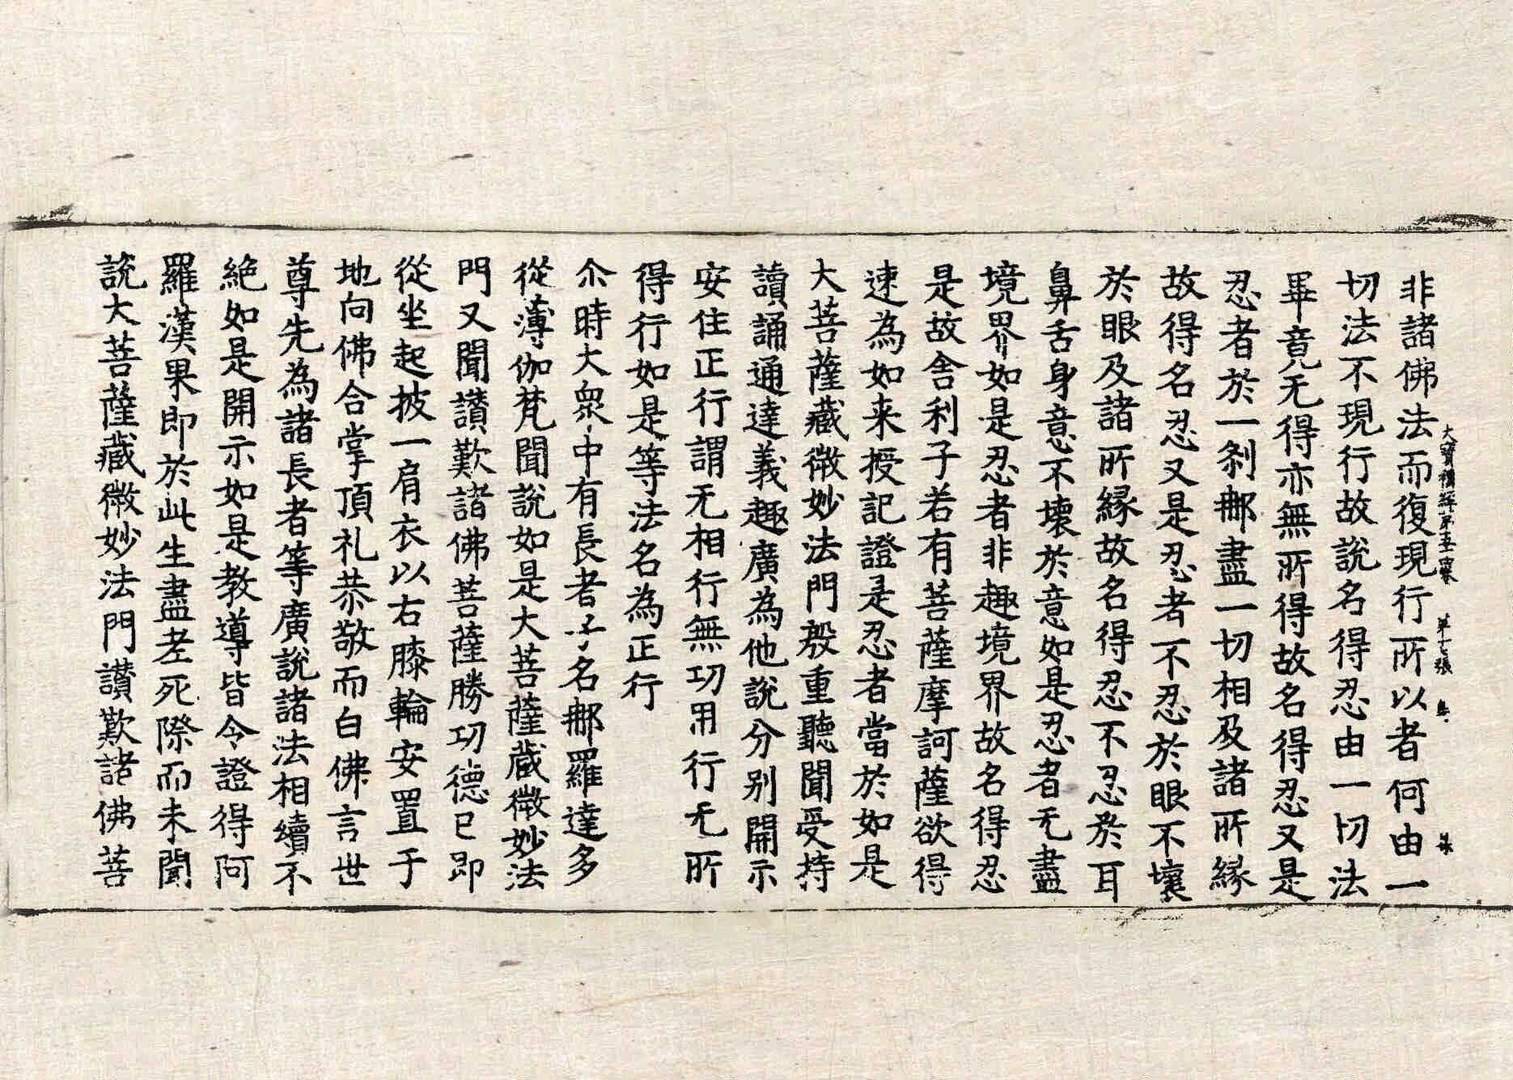 大寶積經第五十四卷 第十七張 
非諸佛法而復現行所以者何由一
切法不現行故說名得忍由一切法
畢竟无得亦無所得故名得忍又是
忍者於一剎那盡一切相及諸所緣
故得名忍又是忍者不忍於眼不壞
於眼及諸所緣故名得忍不忍於耳
鼻舌身意不壞於意如是忍者无盡
境界如是忍者非趣境界故名得忍
是故舍利子若有菩薩摩訶薩欲得
速為如来授記證是忍者當於如是
大菩薩藏微妙法門殷重聽聞受持
讀誦通達義趣廣為他說分別開示
安住正行謂无相行無功用行无所
得行如是等法名為正行
尒時大眾中有長者子名那羅達多
從薄伽梵聞說如是大菩薩藏微妙法
門又聞讚歎諸佛菩薩勝功德已即
從坐起披一肩衣以右膝輪安置于
地向佛合掌頂礼恭敬而白佛言世
尊先為諸長者等廣說諸法相續不
絕如是開示如是教導皆令證得阿
羅漢果即於此生盡老死際而未聞
說大菩薩藏微妙法門讚歎諸佛菩